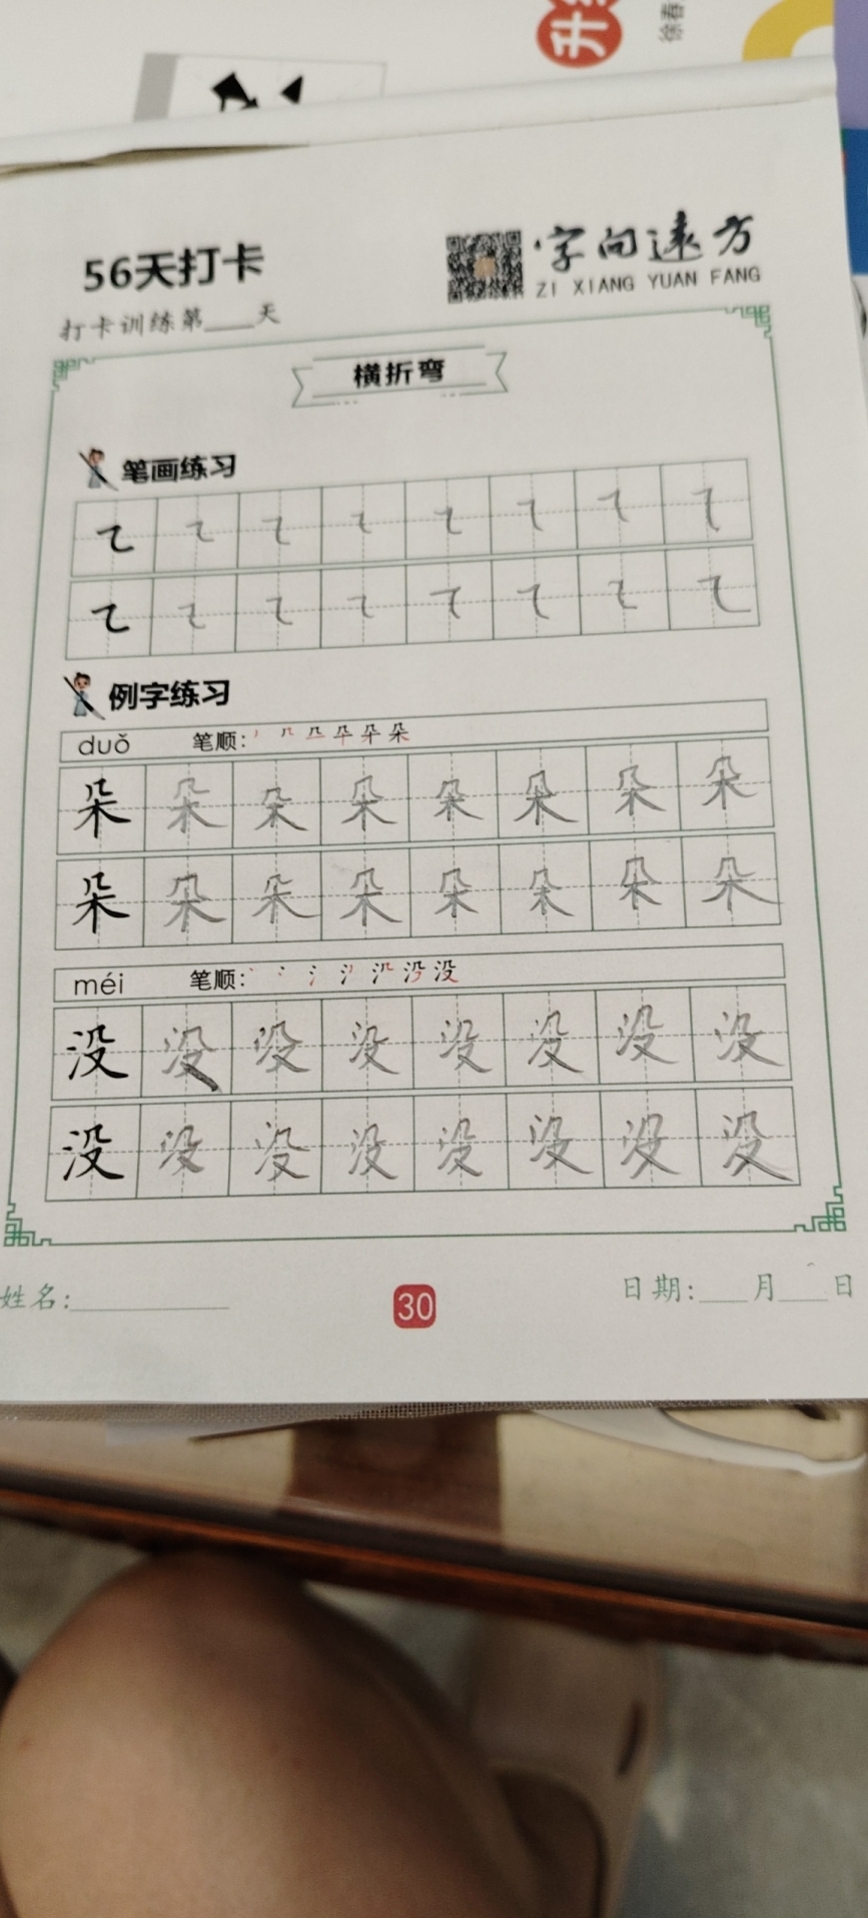 升
徐春
56天打卡
字向远方
ZI XIANG YUAN FANG
打卡训练第____天
横折弯
笔画练习
例字练习
duǒ 笔顺:
朵 朵 朵 朵 朵 朵 朵 朵
朵 朵 朵 朵 朵 朵 朵 朵
méi 笔顺:
没 没 没 没 没 没 没 没
没 没 没 没 没 没 没 没
姓名:__________ 30 日期:___月___日